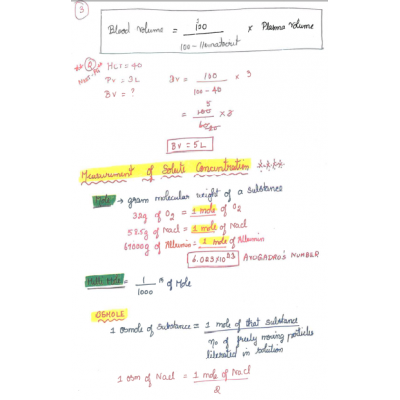 3
Blood volume = 100 / 100 - Hematocrit × Plasma volume
Q HCT = 40
PV = 3L
BV = ?
BV = 100 / 100 - 40 × 3
= 100 / 60 × 3
BV = 5L
Measurement of Solute Concentration ****
Mole → gram molecular weight of a substance
32g of O2 = 1 mole of O2
58.5g of Nacl = 1 mole of Nacl
69000g of Albumin = 1 mole of Albumin
6.023×10^23 AVOGADRO'S NUMBER
Milli Mole = 1 / 1000 th of Mole
OSMOLE
1 Osmole of Substance = 1 mole of that substance
no of freely moving particles
liberated in solution
1 osm of Nacl = 1 mole of Nacl
2